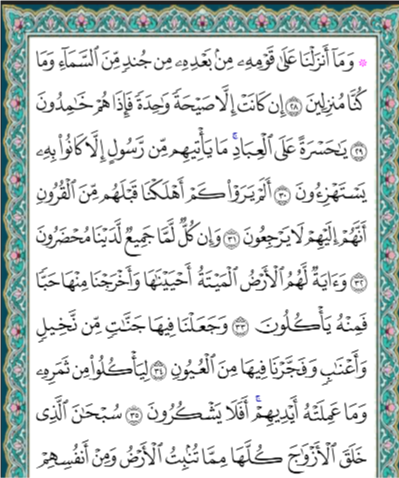 ۞ وَمَآ أَنزَلْنَا عَلَىٰ قَوْمِهِۦ مِنۢ بَعْدِهِۦ مِن جُندٍ مِّنَ ٱلسَّمَآءِ وَمَا
كُنَّا مُنزِلِينَ ٢٨ إِن كَانَتْ إِلَّا صَيْحَةً وَٰحِدَةً فَإِذَا هُمْ خَٰمِدُونَ
٢٩ يَٰحَسْرَةً عَلَى ٱلْعِبَادِ ۚ مَا يَأْتِيهِم مِّن رَّسُولٍ إِلَّا كَانُوا۟ بِهِۦ
يَسْتَهْزِءُونَ ٣٠ أَلَمْ يَرَوْا۟ كَمْ أَهْلَكْنَا قَبْلَهُم مِّنَ ٱلْقُرُونِ
أَنَّهُمْ إِلَيْهِمْ لَا يَرْجِعُونَ ٣١ وَإِن كُلٌّ لَّمَّا جَمِيعٌ لَّدَيْنَا مُحْضَرُونَ
٣٢ وَءَايَةٌ لَّهُمُ ٱلْأَرْضُ ٱلْمَيْتَةُ أَحْيَيْنَٰهَا وَأَخْرَجْنَا مِنْهَا حَبًّا
فَمِنْهُ يَأْكُلُونَ ٣٣ وَجَعَلْنَا فِيهَا جَنَّٰتٍ مِّن نَّخِيلٍ
وَأَعْنَٰبٍ وَفَجَّرْنَا فِيهَا مِنَ ٱلْعُيُونِ ٣٤ لِيَأْكُلُوا۟ مِن ثَمَرِهِۦ
وَمَا عَمِلَتْهُ أَيْدِيهِمْ ۖ أَفَلَا يَشْكُرُونَ ٣٥ سُبْحَٰنَ ٱلَّذِى
خَلَقَ ٱلْأَزْوَٰجَ كُلَّهَا مِمَّا تُنۢبِتُ ٱلْأَرْضُ وَمِنْ أَنفُسِهِمْ